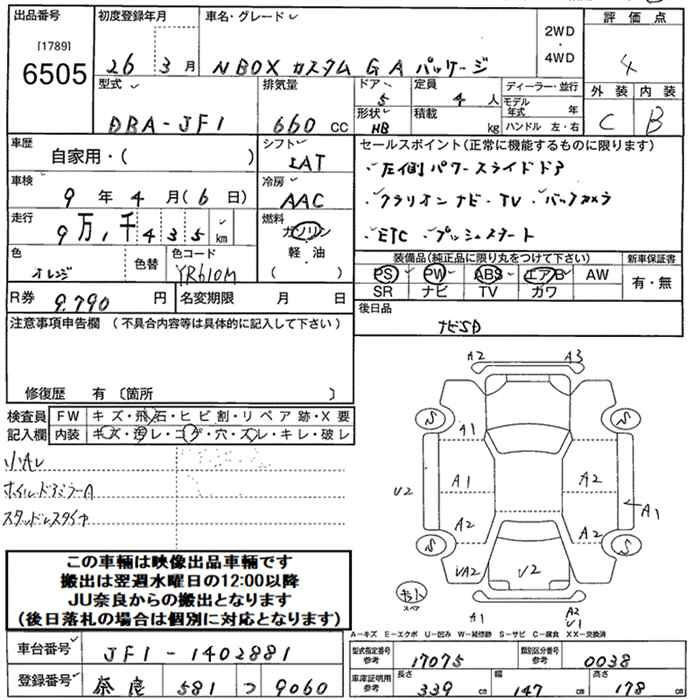 出品番号
[1789]
6505
初度登録年月
26 3月
車名・グレード
N BOX カスタム G A パッケージ
2WD
・
4WD
評価点
4
外装 内装
C B
型式
DBA-JF1
排気量
660 cc
ドア
5
形状
HB
定員
4 人
積載
kg
ディーラー・並行
モデル年式 年
ハンドル 左・右
車歴
自家用・( )
シフト
IAT
車検
9年 4月(6日)
冷房
AAC
走行
9万1千435 km
燃料
ガソリン
軽・油
( )
色
オレンジ
色替
色コード
YR610M
R券 9,790 円
名変期限 月 日
セールスポイント(正常に機能するものに限ります)
・左側パワースライドドア
・クラリオンナビ・TV ・バックカメラ
・ETC ・プッシュスタート
装備品(純正品に限り丸をつけて下さい)
PS PW ABS エアB AW
SR ナビ TV カワ
新車保証書
有・無
後日品
ナビSD
注意事項申告欄(不具合内容等は具体的に記入して下さい)
修復歴 有〔箇所 〕
検査員記入欄
FW キズ・飛石・ヒビ割・リペア跡・X要
内装 キズ・汚レ・コゲ・穴・スレ・キレ・破レ
小AL
ホイル・ドアミラーA
スタッドレスタイヤ
A2 A3
S S
A1
A1 A2
U2 A1
A2 A2
S S
UA2 U2
スペア
A1 A2
U1
A－キズ E－エクボ U－凹み W－補修跡 S－サビ C－腐食 XX－交換済
この車輌は映像出品車輌です
搬出は翌週水曜日の12:00以降
JU奈良からの搬出となります
(後日落札の場合は個別に対応となります)
車台番号 JF1-1402881
登録番号 奈良 581 つ 9060
型式指定番号 参考 17075
類別区分番号 参考 0038
車庫証明用 参考
長さ 339 cm
幅 147 cm
高さ 178 cm